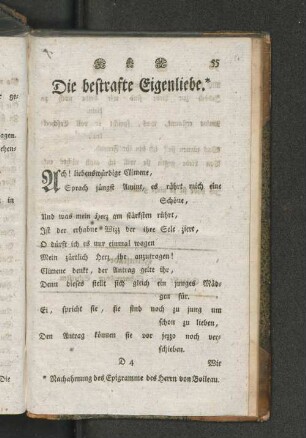 55
Die bestrafte Eigenliebe.*
Ach! liebenswürdige Climene,
Sprach jüngst Amint, es rührt mich eine
Schöne,
Und was mein Herz am stärksten rührt,
Ist der erhabne Wizz der ihre Sele ziert,
O dürft ich es nur einmal wagen
Mein zärtlich Herz ihr anzutragen!
Climene denkt, der Antrag gelte ihr,
Denn dieses stellt sich gleich ein junges Mäd-
gen für.
Ei, spricht sie, sie sind noch zu jung um
schon zu lieben,
Den Antrag können sie vor jezzo noch ver-
schieben.
D 4
Wir
* Nachahmung des Epigramme des Herrn von Boileau.
ge-
agen.
ehen-
in
Die